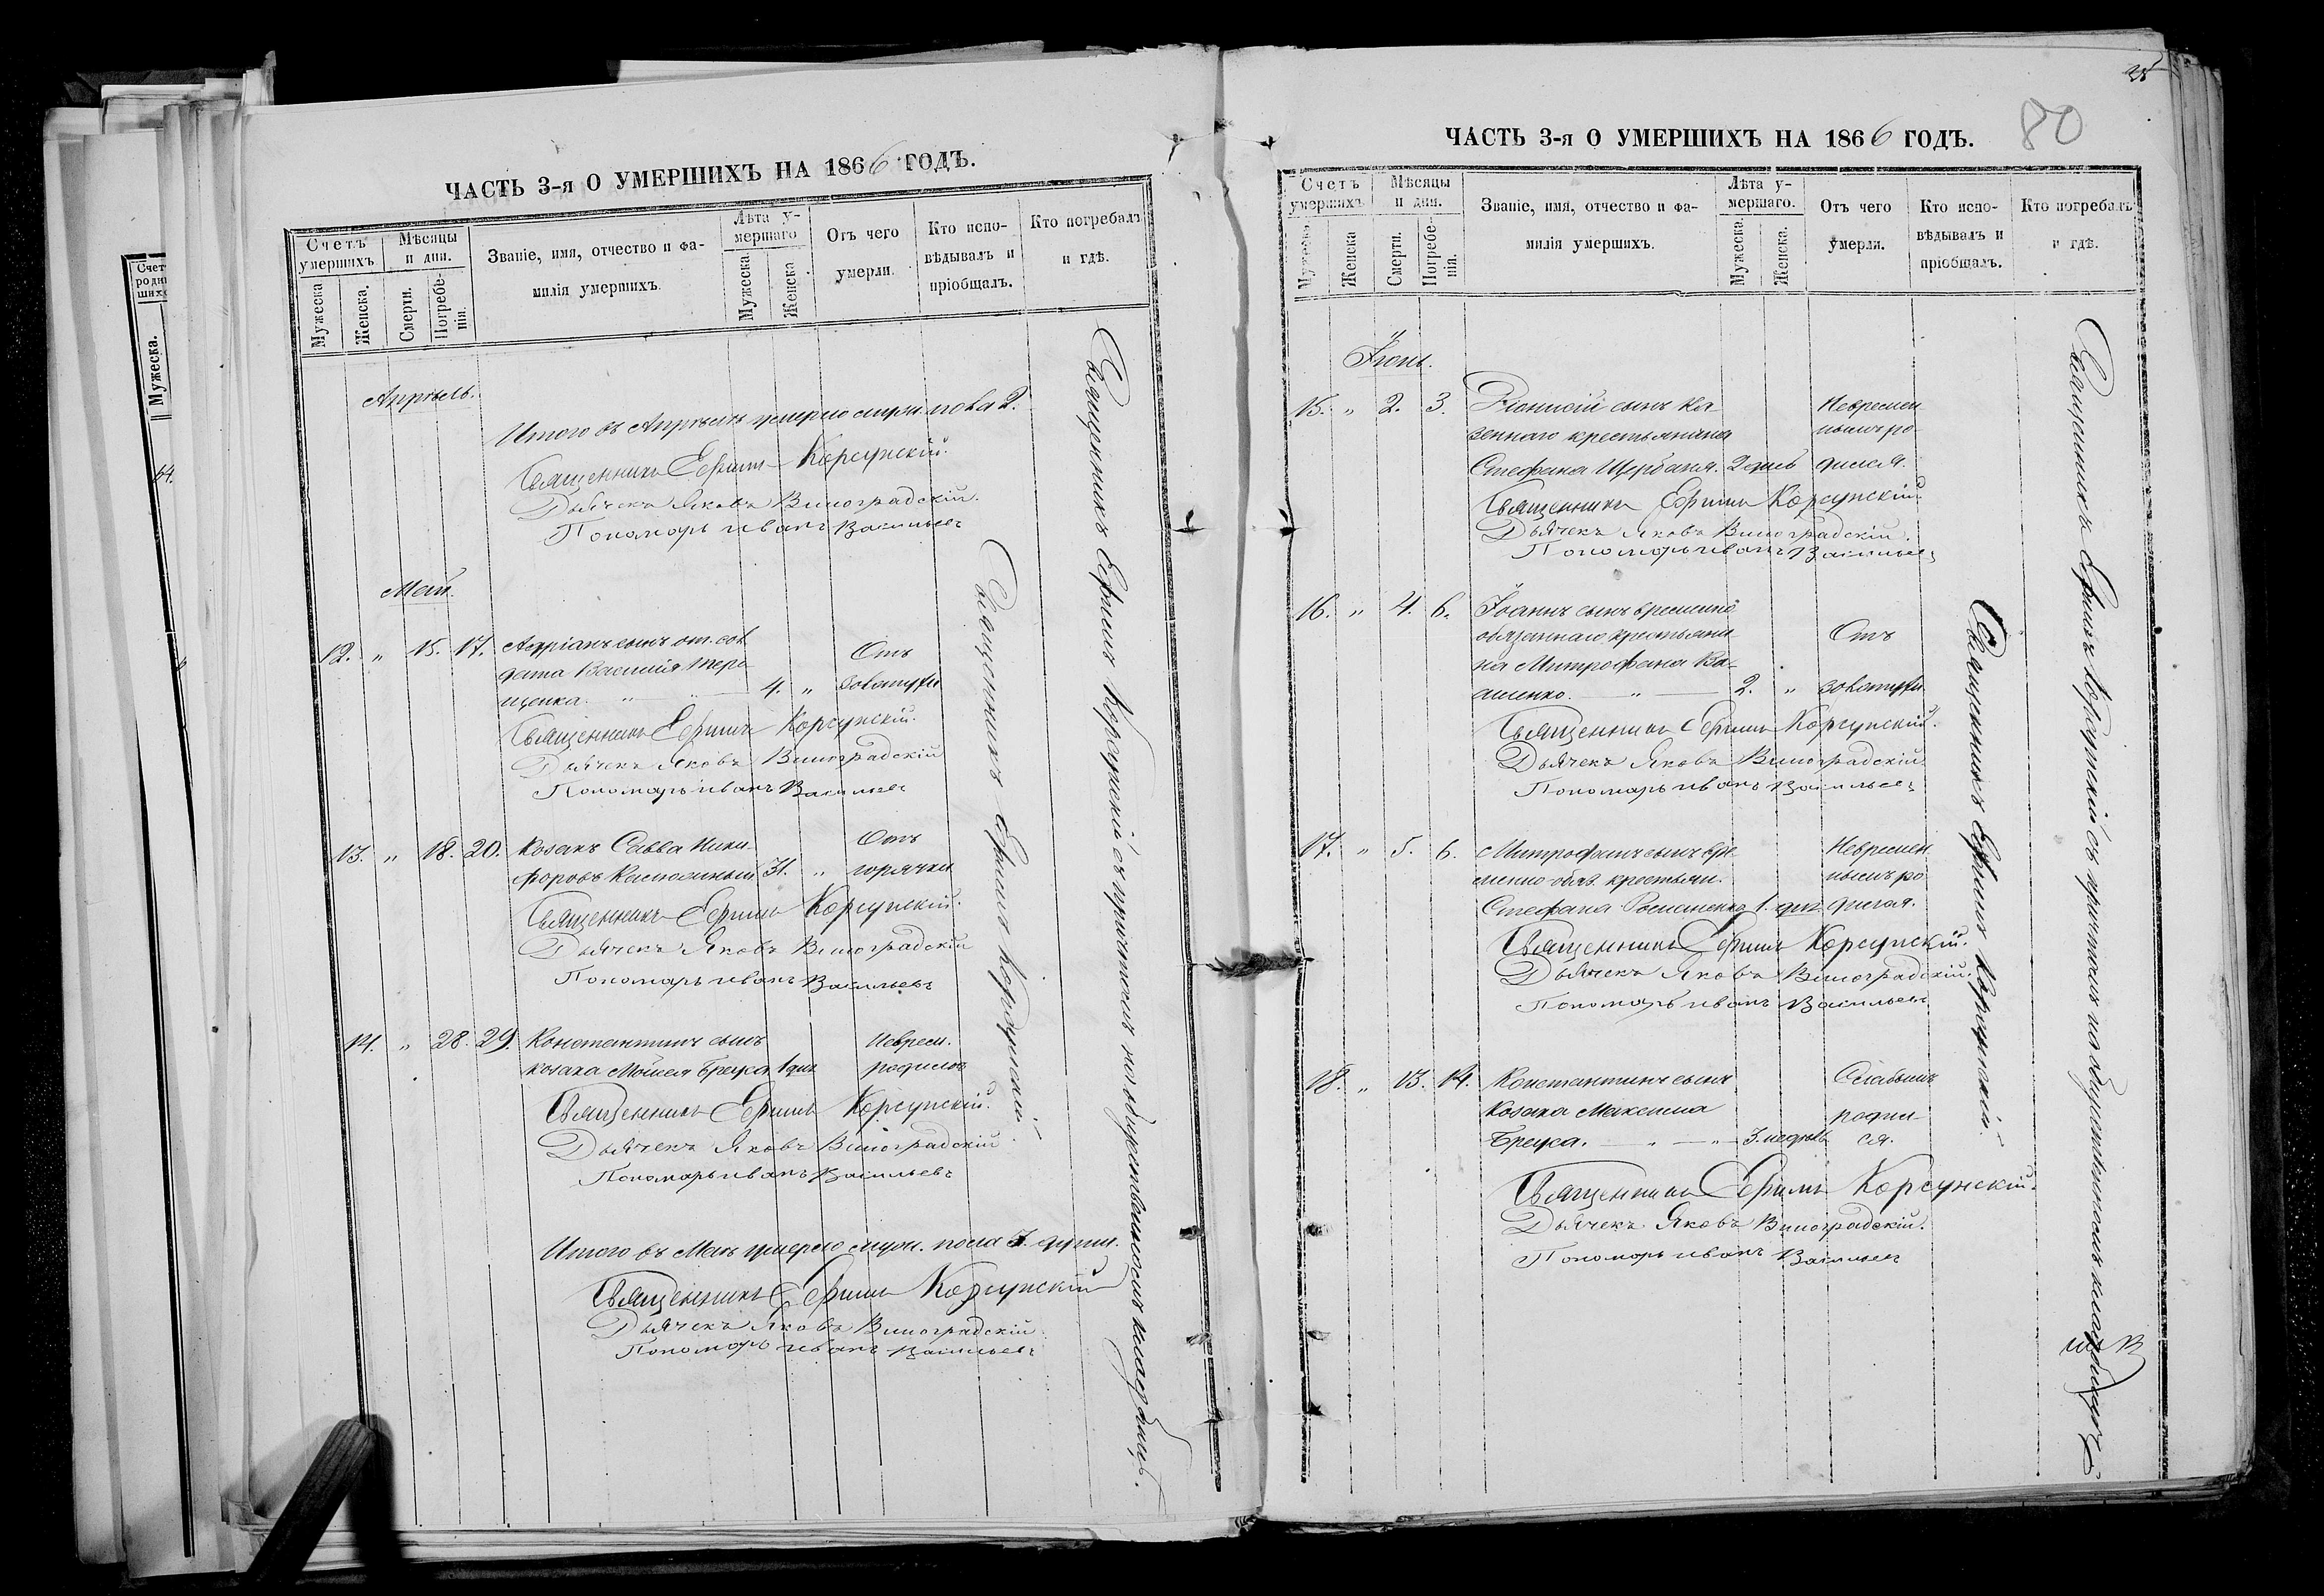 Счет
родив
шихся
Мужеска.
64.
ЧАСТЬ 3-я О УМЕРШИХЪ НА 1866 ГОДЪ.
Счетъ умершихъ.
Мужеска
Женска.
Мѣсяцы и дни.
Смерти.
Погребе-
нія.
Званіе, имя, отчество и фа-
милія умершихъ.
Лѣта у-
мершаго
Мужеска.
Женска
Отъ чего
умерли.
Кто испо-
вѣдывалъ и
пріобщалъ.
Кто погребалъ
и гдѣ.
Апрѣль.
Итого въ Апрѣлѣ умерло муж. пола 2.
Священникъ Ефимъ Корсунскій.
Дьячекъ Яковъ Виноградскій.
Пономарь иванъ Васильевъ
Май.
12. „ 15. 17. Адріанъ сынъ от. сол
дата Василія Тере- Отъ
щенка. „ 4. „ золотухи
Священникъ Ефимъ Корсунскій.
Дьячекъ Яковъ Виноградскій
Пономарь иванъ Васильевъ
13. „ 18. 20. Козакъ Савва Ники- Отъ
форовъ 31. „ горячки
Священникъ Ефимъ Корсунскій.
Дьячекъ Яковъ Виноградскій
Пономарь иванъ Васильевъ
14. „ 28. 29. Константинъ сынъ Неврем.
козака Моисея Бреуса 1 дня родился
Священникъ Ефимъ Корсунскій.
Дьячекъ Яковъ Виноградскій.
Пономарь иванъ Васильевъ
Итого въ Маѣ умерло муж. пола 3. души.
Священникъ Ефимъ Корсунскій
Дьячекъ Яковъ Виноградскій.
Пономарь иванъ Васильевъ
Священникъ Ефимъ Корсунскій.
Священникъ Ефимъ Корсунскій съ причтомъ на общественномъ кладбищѣ.
35
80
ЧАСТЬ 3-я О УМЕРШИХЪ НА 1866 ГОДЪ.
Счетъ
умершихъ
Мужеска
Женска
Мѣсяцы
и дни.
Смерти.
Погребе-
нія.
Званіе, имя, отчество и фа-
милія умершихъ.
Лѣта у-
мершаго.
Мужеска.
Женска.
Отъ чего
умерли.
Кто испо-
вѣдывалъ и
пріобщалъ.
Кто погребалъ
и гдѣ.
Іюнь.
15. „ 2. 3. Діонисій сынъ ка- Невремен
зеннаго крестьянина нымъ ро-
Стефана Щербака. 2 дней дился.
Священникъ Ефимъ Корсунскій.
Дьячекъ Яковъ Виноградскій.
Пономарь иванъ Васильевъ
16. „ 4. 6. Іоаннъ сынъ временно
обязаннаго крестьяни- Отъ
на Митрофана Ва-
2. „ золотухи
Священникъ Ефимъ Корсунскій.
Дьячекъ Яковъ Виноградскій.
Пономарь иванъ Васильевъ
17. „ 5. 6. Митрофанъ сынъ вре- Невремен
менно обяз. крестьян. нымъ ро
Стефана Романенка 1. дня дился.
Священникъ Ефимъ Корсунскій.
Дьячекъ Яковъ Виноградскій.
Пономарь иванъ Васильевъ
18. „ 13. 14. Константинъ сынъ Слабымъ
козака Максима родил
Бреуса. 3. недѣль ся.
Священникъ Ефимъ Корсунскій.
Дьячекъ Яковъ Виноградскій.
Пономарь иванъ Васильевъ
Священникъ Ефимъ Корсунскій.
Священникъ Ефимъ Корсунскій съ причтомъ на общественномъ кладбищѣ